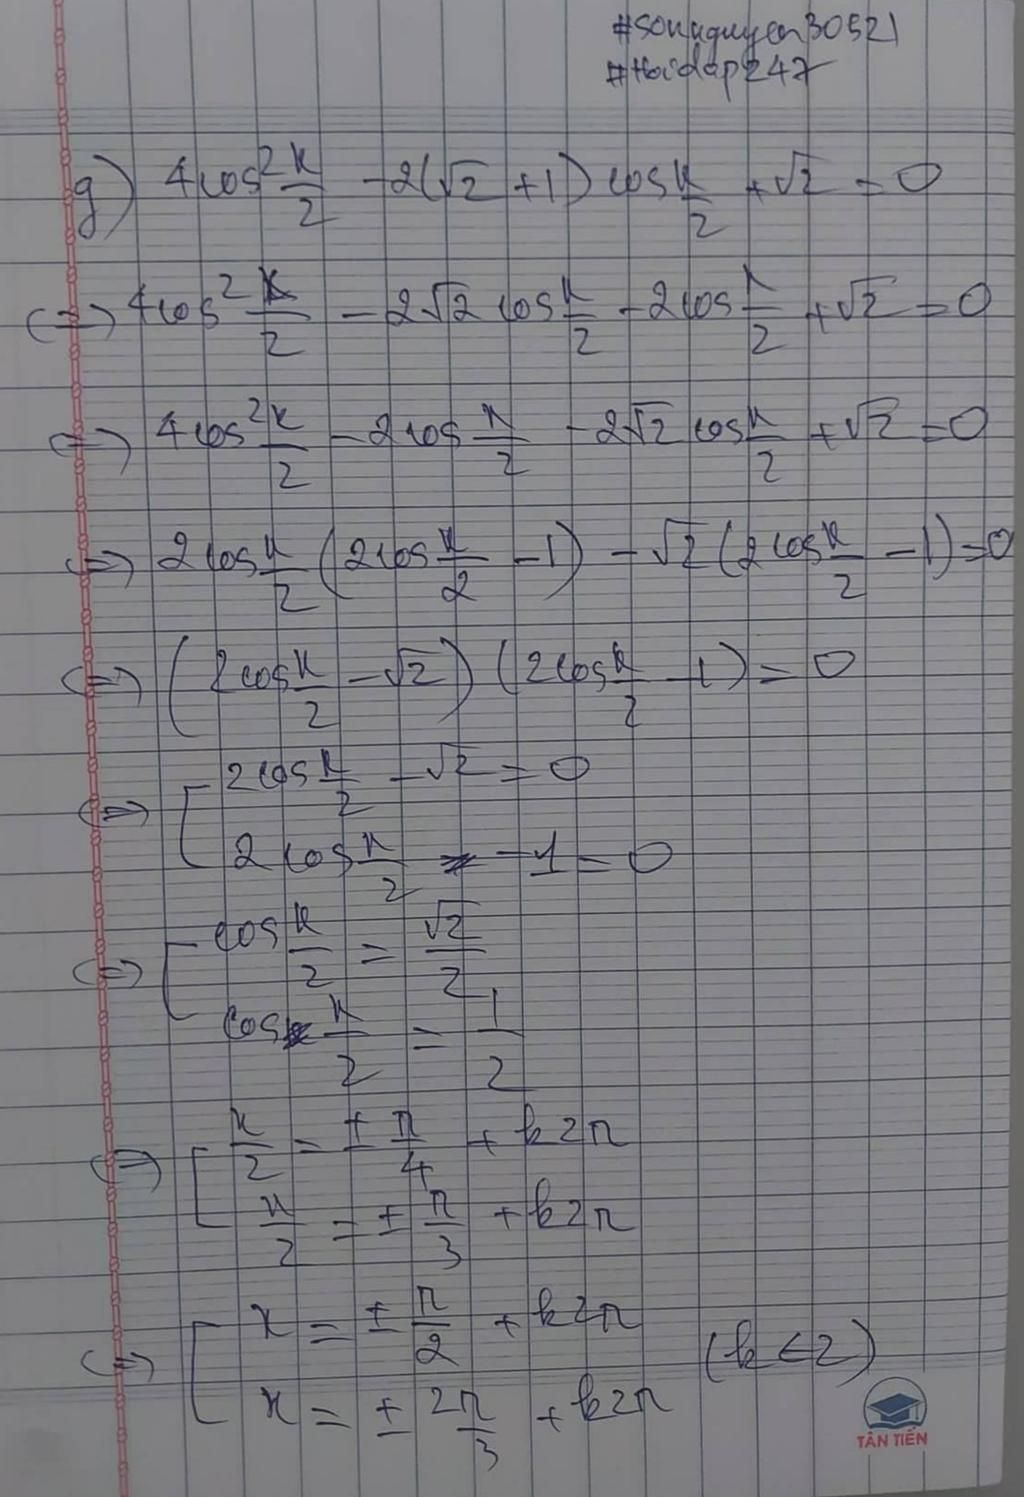 #sonnguyen30521
#Hoidap247
g) 4cos²x/2 - 2(√2 + 1) cos x/2 + √2 = 0
⇔ 4cos² x/2 - 2√2 cos x/2 - 2cos x/2 + √2 = 0
⇔ 4cos² x/2 - 2cos x/2 - 2√2 cos x/2 + √2 = 0
⇔ 2cos x/2 (2cos x/2 - 1) - √2 (2cos x/2 - 1) = 0
⇔ (2cos x/2 - √2) (2cos x/2 - 1) = 0
⇔ [ 2cos x/2 - √2 = 0
2cos x/2 - 1 = 0
⇔ [ cos x/2 = √2/2
cos x/2 = 1/2
⇔ [ x/2 = ± π/4 + k2π
x/2 = ± π/3 + k2π
⇔ [ x = ± π/2 + k2π (k ∈ Z)
x = ± 2π/3 + k2π
TÂN TIẾN